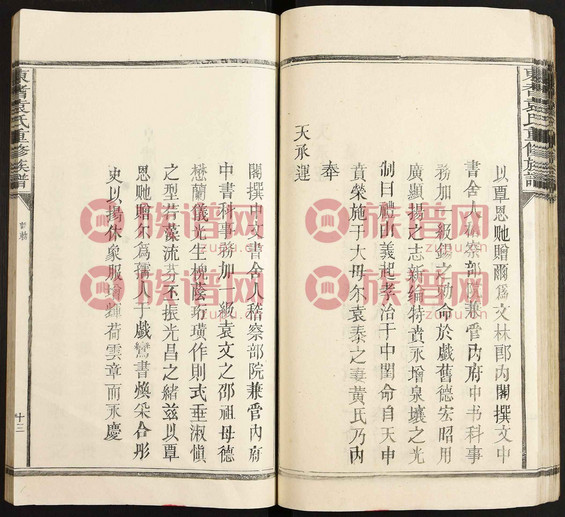 東耆袁氏重修族譜
以覃恩貤贈爾爲文林郎內閣撰文中
書舍人稽察部院兼管內府中書科事
務加一級錫之勅命於戲舊德宏昭用
廣顯揚之志新綸特賁永增泉壤之光
制曰禮由義起孝治于中閨命自天申
賁榮施于大母尔袁泰之妻黄氏乃内
奉
天承運
閣撰中文書舍人稽察部院兼管內府
中書科事務加一級袁文之邵祖母德
懋蘭儀光生椒蔭珩璜作則式垂淑慎
之型苦藻流芬丕振光昌之緒兹以覃
恩貤贈尔爲孺人于戲鸞書煥采合彤
史以揚休象服揄輝荷雲章而永慶
東耆袁氏重修族譜
十三
族谱网